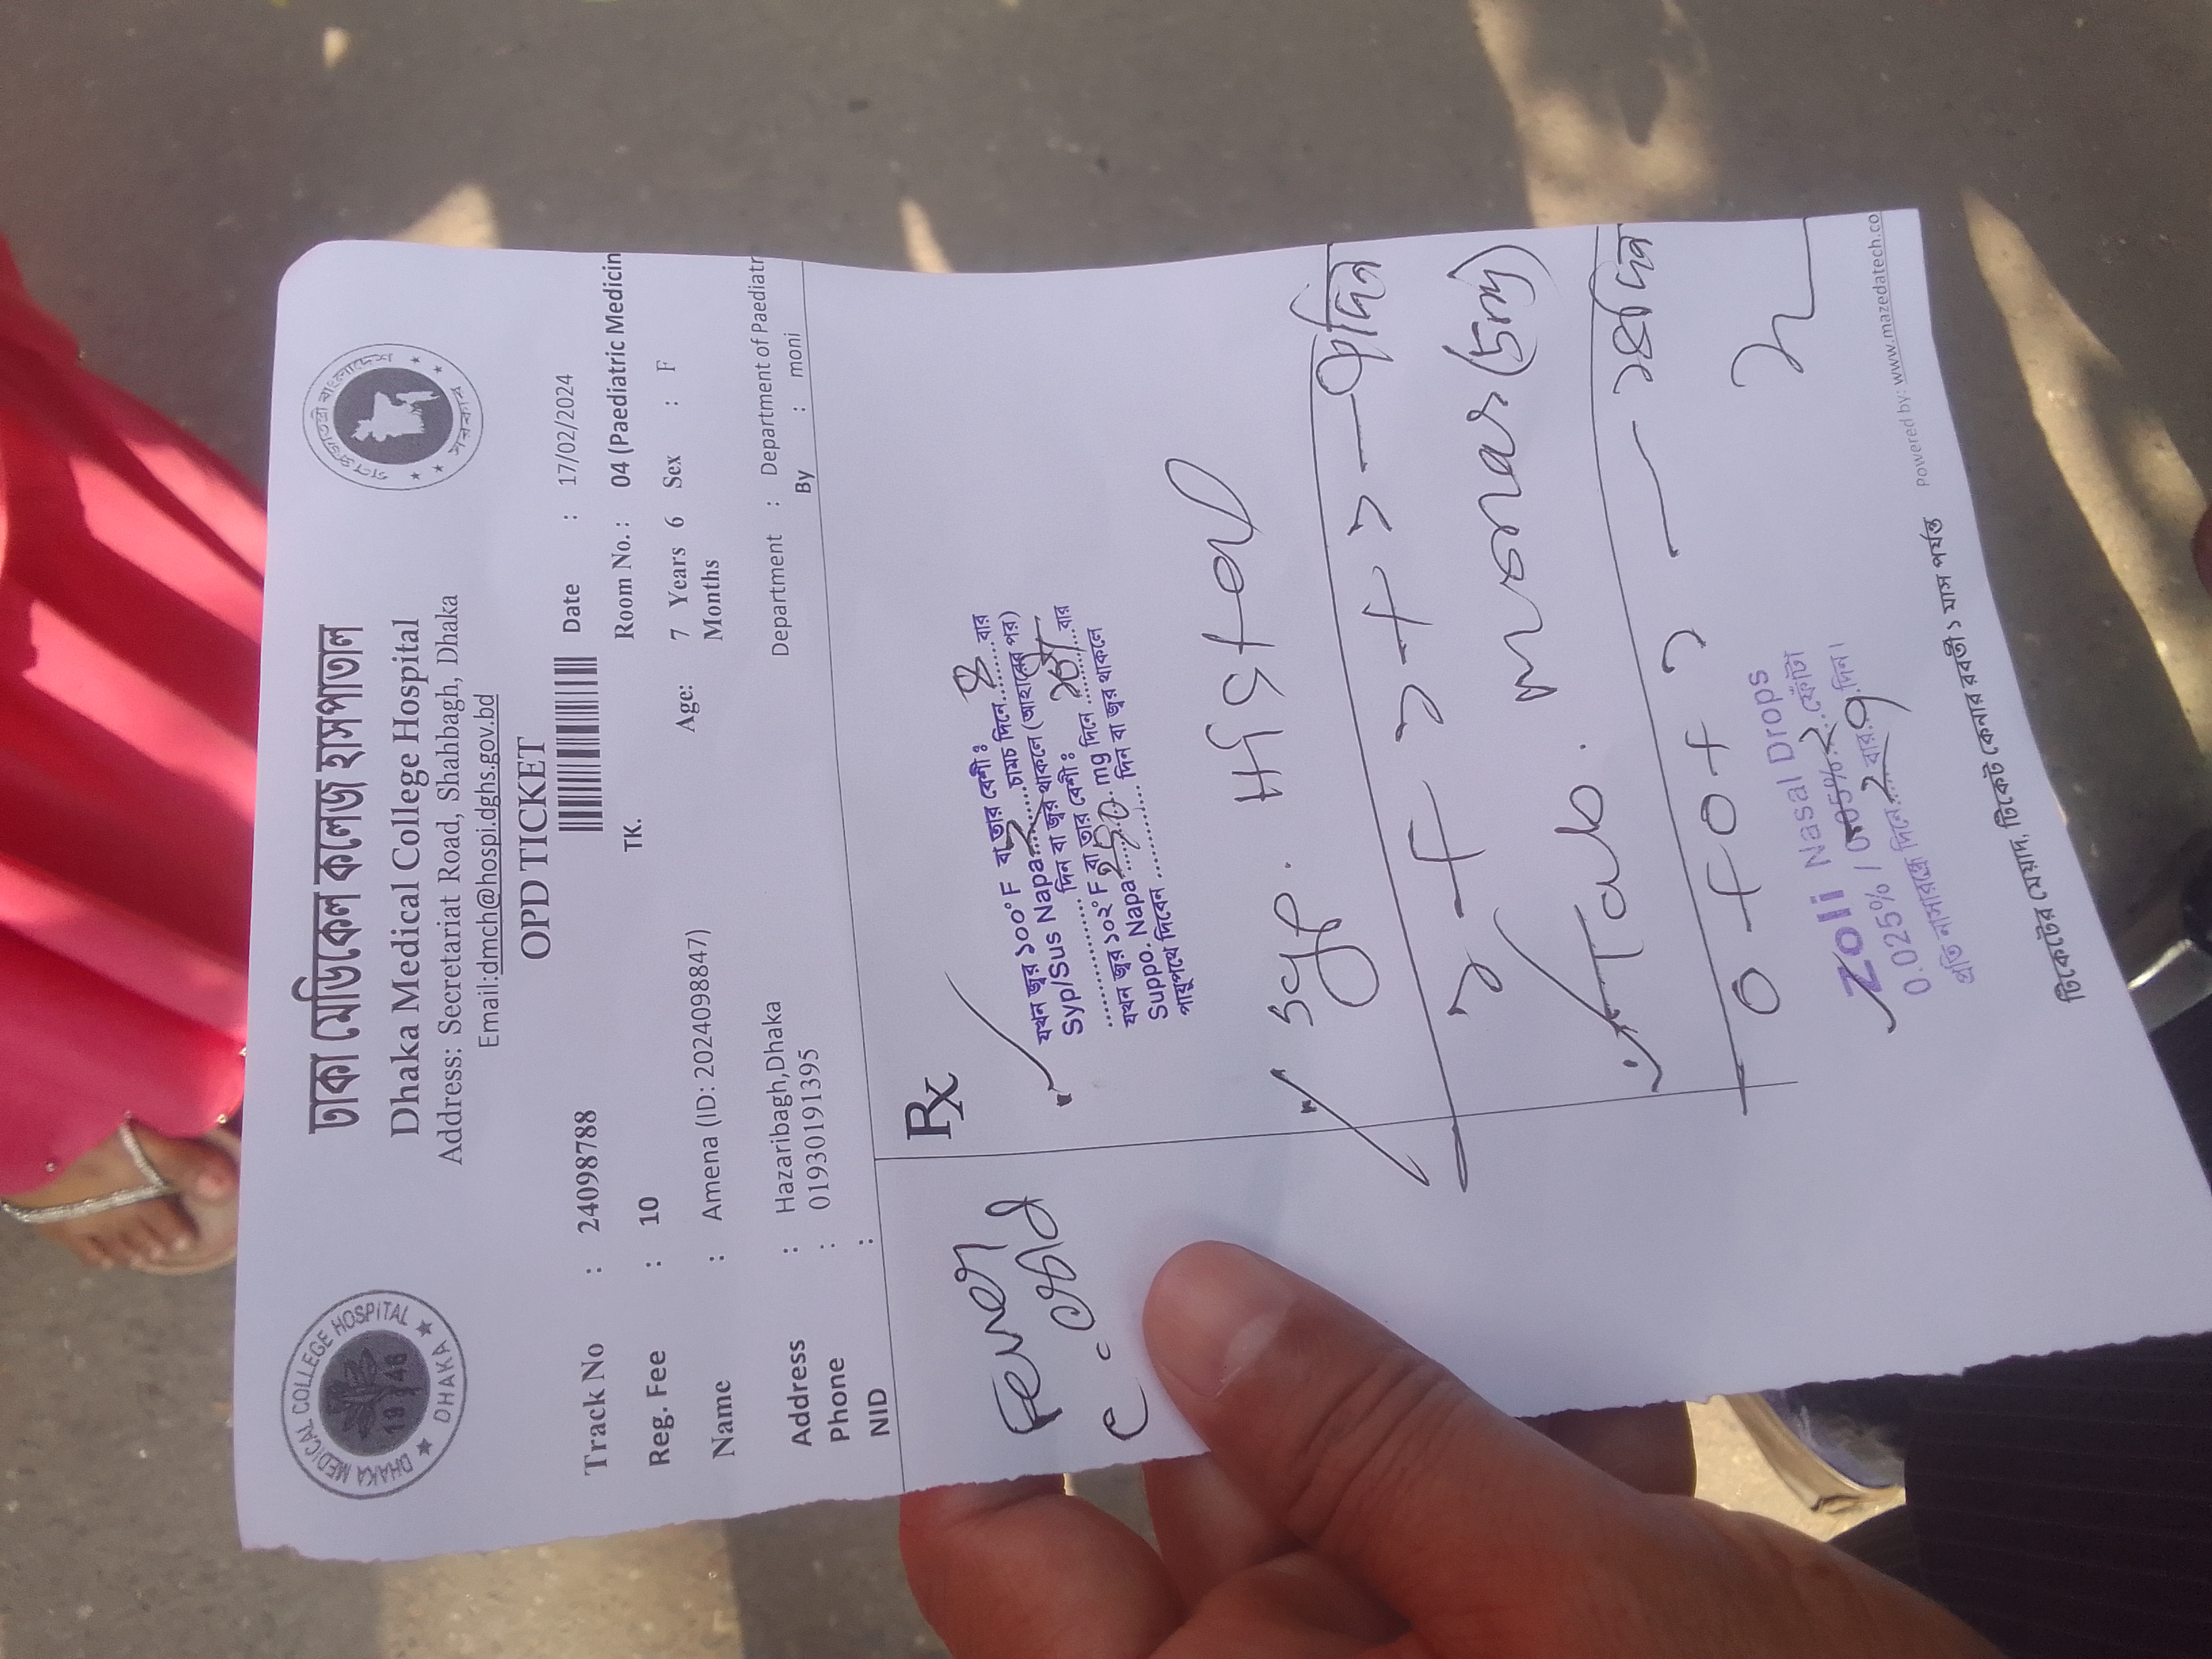 DHAKA MEDICAL COLLEGE HOSPITAL
1946
DHAKA
ঢাকা মেডিকেল কলেজ হাসপাতাল
গণপ্রজাতন্ত্রী বাংলাদেশ
সরকার
Dhaka Medical College Hospital
Address: Secretariat Road, Shahbagh, Dhaka
Email:dmch@hospi.dghs.gov.bd
OPD TICKET
Track No : 24098788 Date : 17/02/2024
Reg. Fee : 10 TK. Room No. : 04 (Paediatric Medicin
Name : Amena (ID: 2024098847) Age: 7 Years 6 Months Sex : F
Address : Hazaribagh,Dhaka Department : Department of Paediatr
Phone : 01930191395 By : moni
NID :
Fever
c cold
Rx
যখন জ্বর ১০০°F বা তার বেশী :
Syp/Sus Napa ২ চামচ দিনে ৪ বার
দিন বা জ্বর থাকলে (আহারের পর)
যখন জ্বর ১০২°F বা তার বেশী :
Suppo. Napa 250 mg দিনে বার
পায়ুপথে দিবেন দিন বা জ্বর থাকলে
Syp. Histal
১ + ১ + ১ — ৭ দিন
Tab. Monas (5mg)
০ + ০ + ১ — ১৪ দিন
Zoli Nasal Drops
0.025% / 0.05% ২ ফোঁটা
প্রতি নাসারন্ধ্রে দিনে ২ বার ৭ দিন।
Powered by: www.mazedatech.co
টিকেটের মেয়াদ, টিকেট কেনার রবর্তী ১ মাস পর্যন্ত